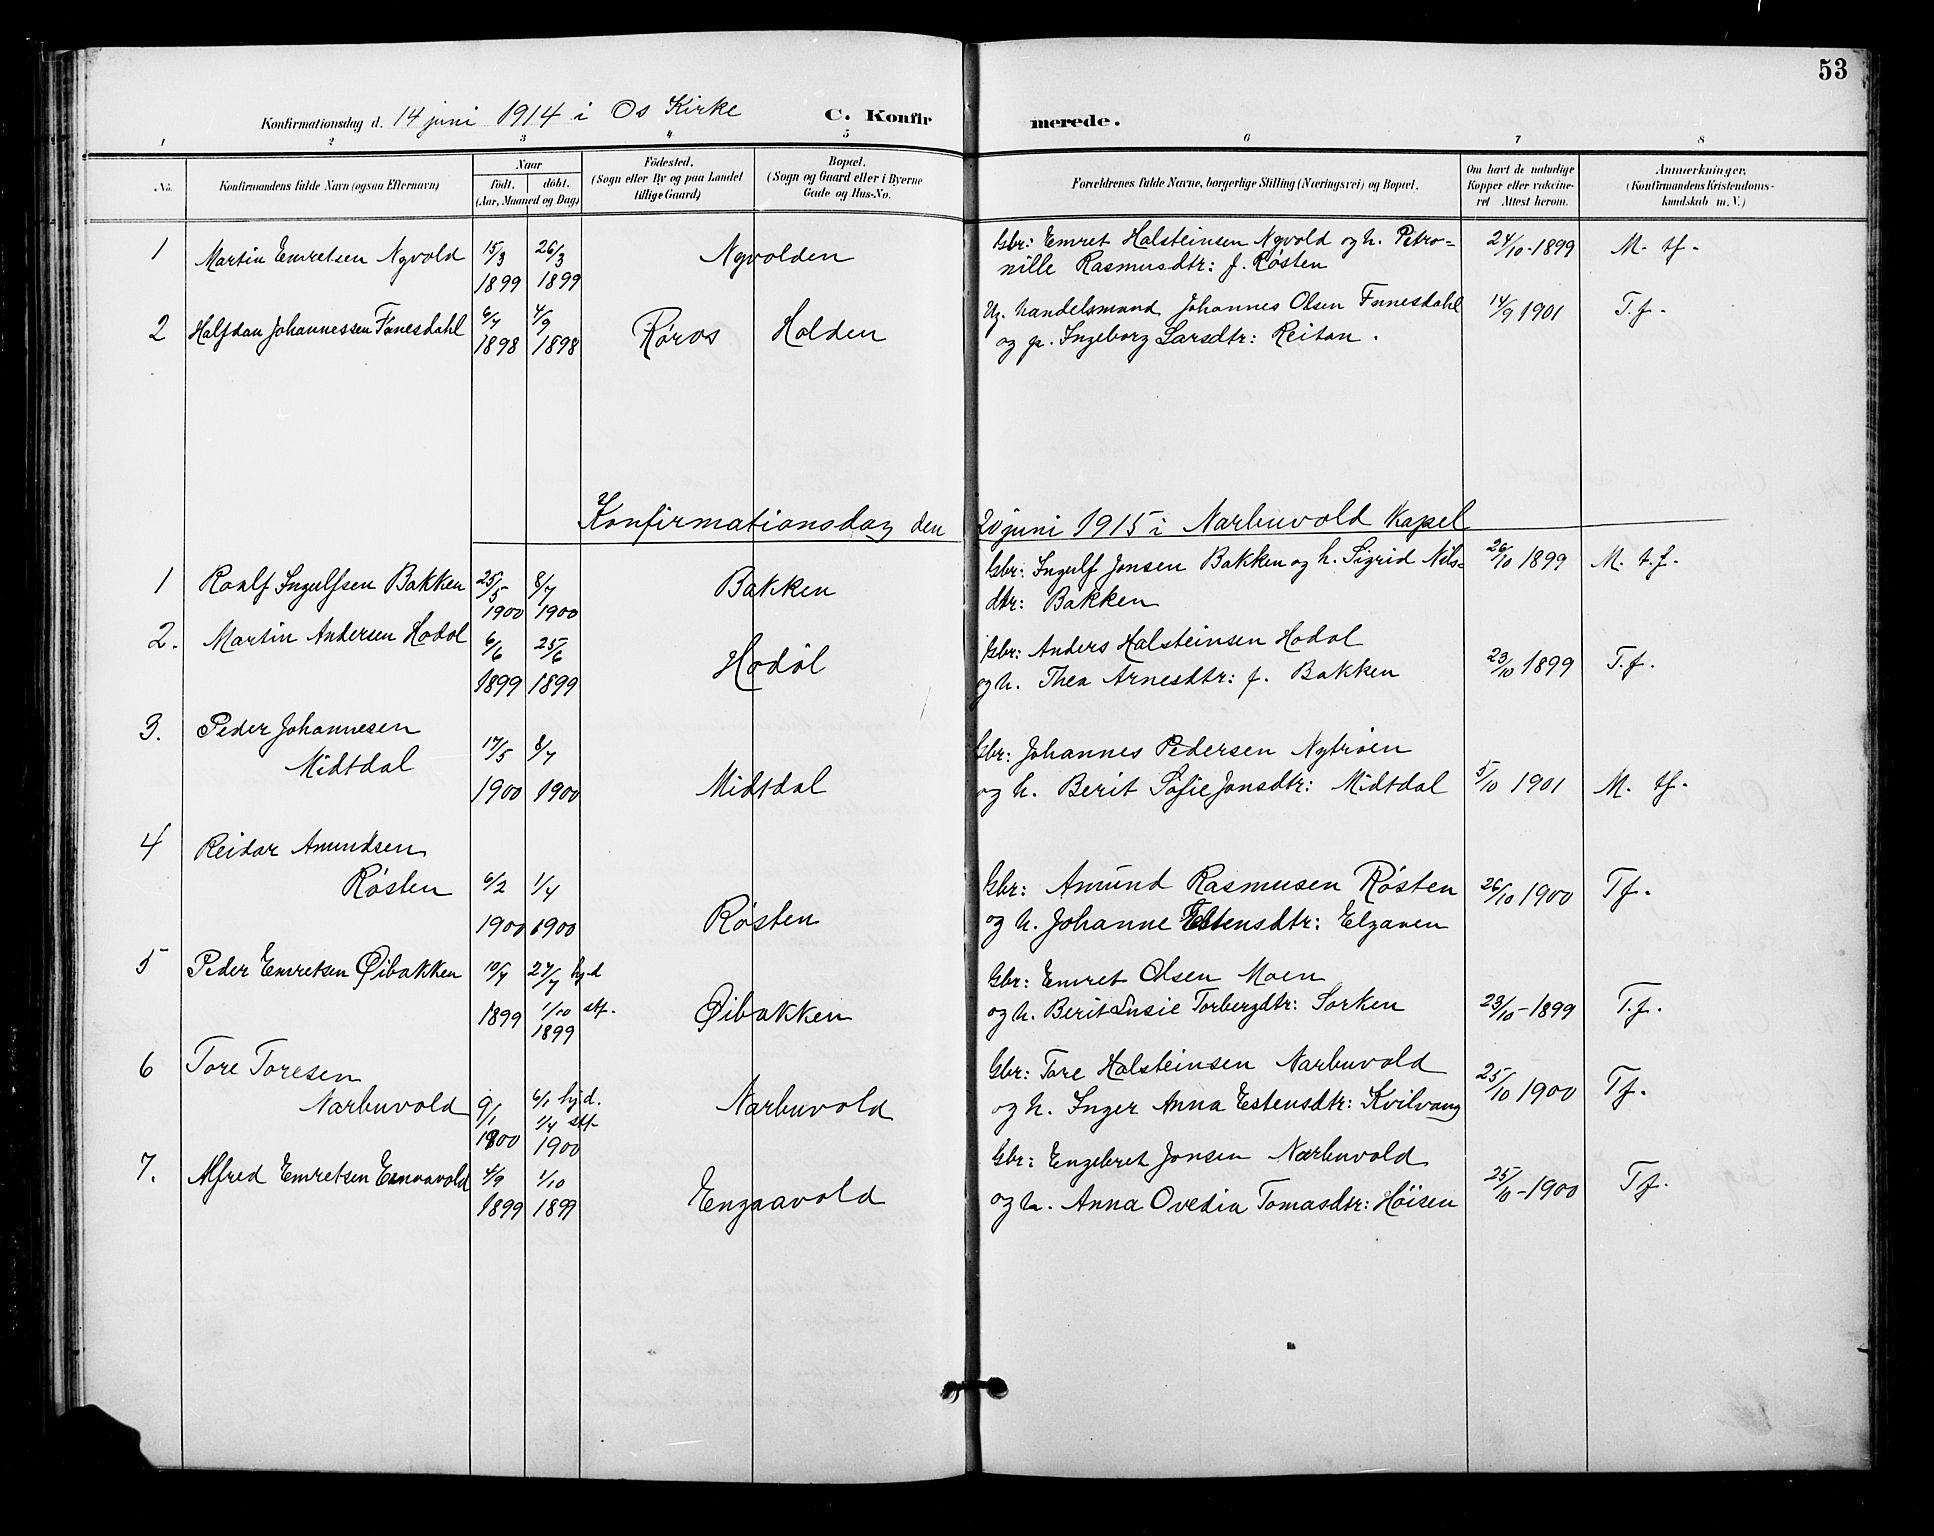 53
Konfirmationsdag d. 14 juni 1914 i Os Kirke C. Konfirmerede.
1 2 3 4 5 6 7 8
No.
Konfirmandens fulde Navn (ogsaa Efternavn)
Naar
født. døbt.
(Aar, Maaned og Dag)
Fødested.
(Sogn eller By og paa Landet
tillige Gaard)
Bopæl.
(Sogn og Gaard eller i Byerne
Gade og Hus-No.
Forældrenes fulde Navne, borgerlige Stilling (Næringsvei) og Bopæl.
Om havt de naturlige
Kopper eller vakcine-
ret Attest herom.
Anmerkninger.
(Konfirmandens Kristendoms-
kundskab m. V.)
1 Martin Emretsen Nyvold 15/3 26/3 Nyvolden Gbr: Emret Halsteinsen Nyvold og h. Petro= 24/10-1899 M. tf.
1899 1899 nille Rasmusdtr: f. Røsten
2 Halfdan Johannessen Fonesdahl 6/7 4/9 Røros Holden Ug. handelsmand Johannes Olsen Fonesdahl 14/9 1901 T.f.
1898 1898 og p. Ingeborg Larsdtr: Reitan.
Konfirmationsdag den 20 juni 1915 i Narbuvold Kapel
1 Roalf Ingulfsen Bakken 25/5 8/7 Bakken Gbr: Ingulf Jonsen Bakken og h. Sigrid Nils= 26/10 1899 M. t.f.
1900 1900 dtr: Bakken
2. Martin Andersen Hodøl 6/6 25/6 Hodøl Gbr: Anders Halsteinsen Hodøl 23/10 1899 T.f.
1899 1899 og h. Thea Arnesdtr: f. Bakken
3. Peder Johannesen
Midtdal 17/5 8/7 Midtdal Gbr: Johannes Pedersen Nytrøen
1900 1900 og h. Berit Sofie Jonsdtr: Midtdal 5/10 1901 M. tf.
4 Reidar Amundsen
Røsten 6/2 1/4 Røsten Gbr: Amund Rasmusen Røsten 26/10 1900 Tf.
1900 1900 og h. Johanne Estensdtr: Elgaaen
5 Peder Emretsen Øibakken 27/7 hjd Øibakken Gbr: Emret Olsen Moen
1899 1/10 stf. og h. Berit Lusie Torbergdtr: Sorken 23/10-1899 T.f.
1899
6 Tore Toresen
Narbuvold 9/1 6/1 hjd. Narbuvold Gbr: Tore Halsteinsen Narbuvold 25/10 1900 Tf.
1/4 stf. og h. Inger Anna Estensdtr: Kvilvang
1900 1900
7. Alfred Emretsen Engaavold 4/9 1/10 Engaavold Gbr: Engebret Jonsen Narbuvold
1899 1899 og h. Anna Ovedia Tomasdtr: Høisen 25/10-1900 Tf.